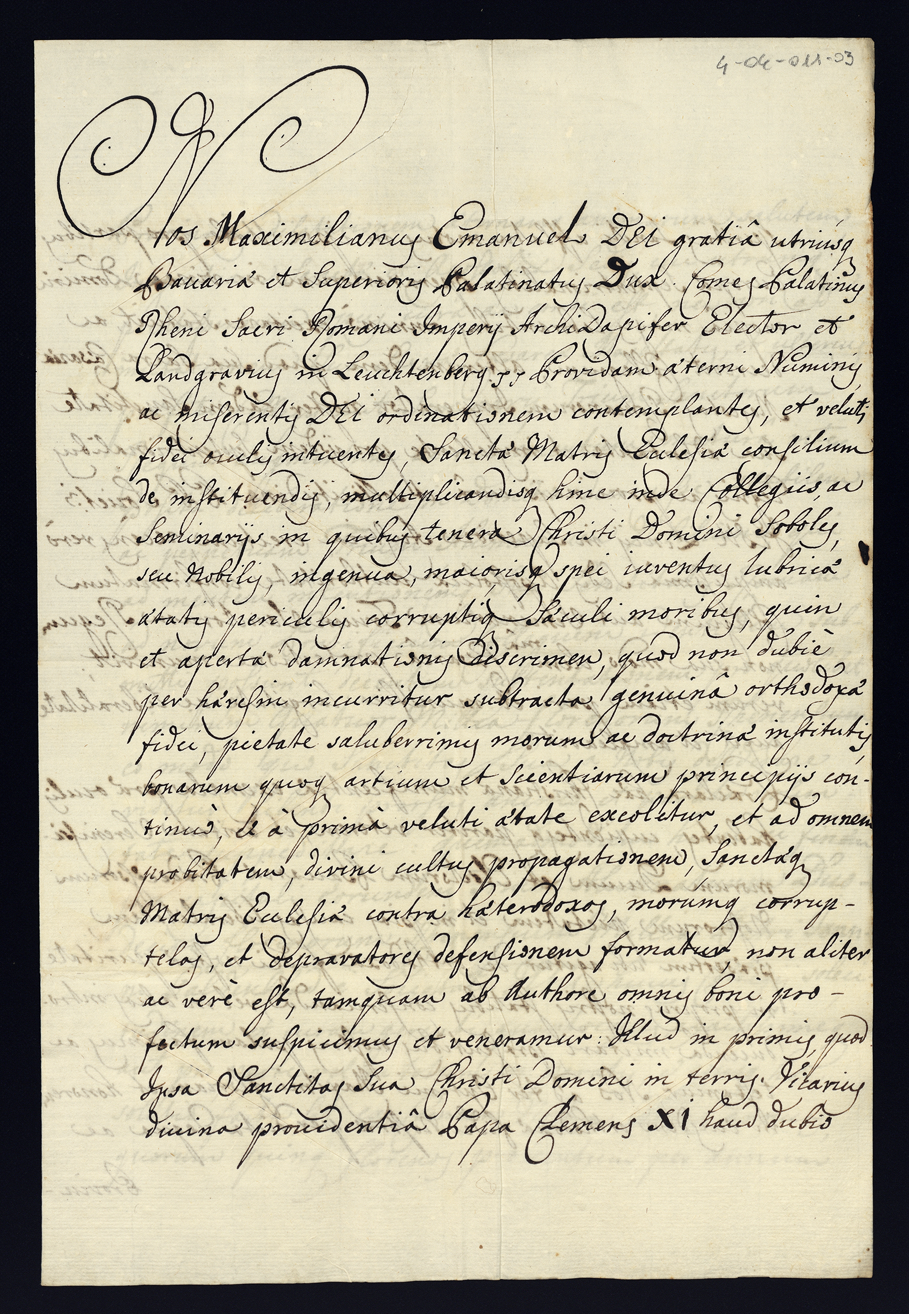 4-04-011-03
Nos Maximilianus Emanuel DEI gratiâ utriusq
Bavariæ et Superioris Palatinatus Dux Comes Palatinus
Rheni Sacri Romani Imperij ArchiDapifer Elector et
Landgravius in Leuchtenberg Providam æterni Numinis,
ac miserentis DEI ordinationem contemplantes, et veluti
fidei oculis intuentes, Sanctæ Matris Ecclesiæ consilium
de instituendis, multiplicandisq hinc inde Collegiis, ac
Seminarijs in quibus tenera Christi Domini Soboles,
seu Nobilis, ingenua, maiorisq spei iuventus lubricæ
ætatis periculis corruptiq Sæculi moribus, quin
et apertæ damnationis discrimen, quod non dubiè
per hæresin incurritur subtracta genuinâ orthodoxæ
fidei, pietate saluberrimis morum ac doctrinæ institutis,
bonarum quoq artium et Scientiarum principijs con-
tinuò, à primâ veluti ætate excolitur, et ad omnem
probitatem, divini cultus propagationem, Sanctæq
Matris Ecclesiæ contra hæterodoxos, morúmq corrup-
telas, et depravatores defensionem formatur, non aliter
ac verè est, tamquam ab Authore omnis boni pro-
fectum suspicimus et veneramur: Illud in primis quod
Ipsa Sanctitas Sua Christi Domini in terris Vicarius
divina providentiâ Papa Clemens XI haud dubio